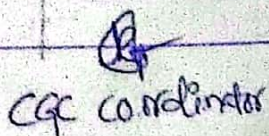 CGC coordinator